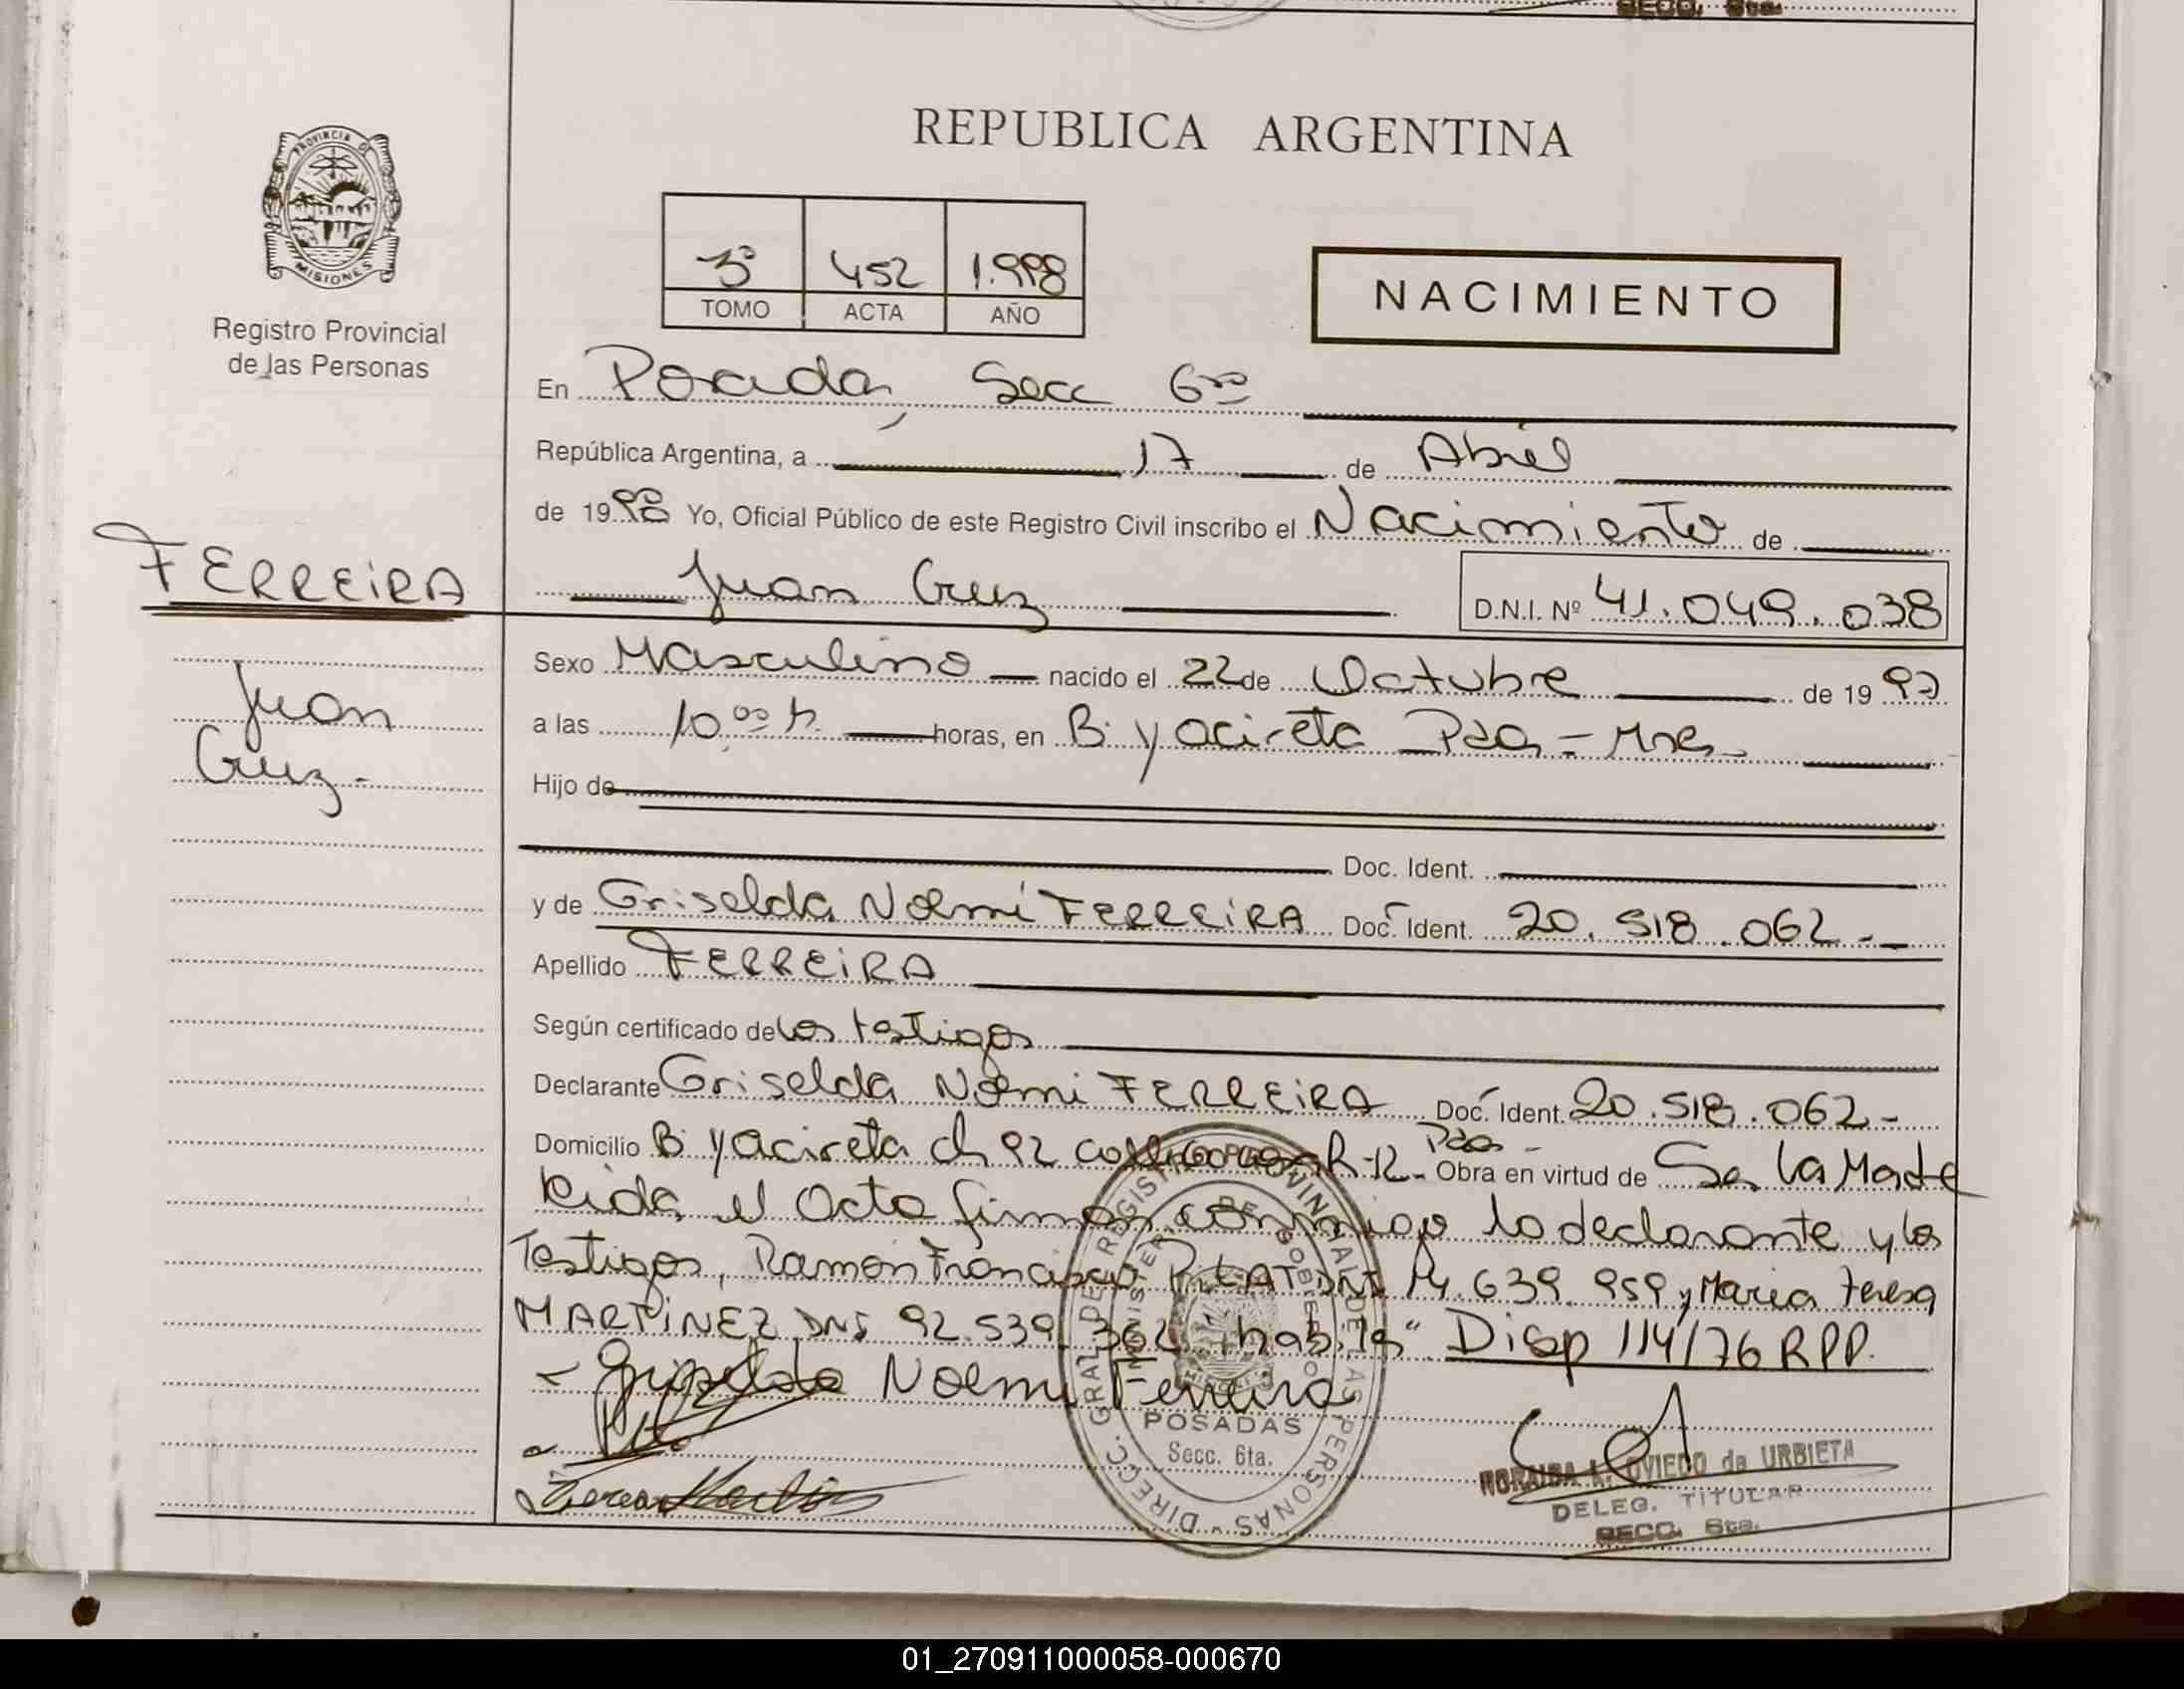 SECC. 6ta.
REPUBLICA ARGENTINA
PROVINCIA DE MISIONES
Registro Provincial
de las Personas
3º 452 1.998
TOMO ACTA AÑO
NACIMIENTO
En Posadas, Secc 6ta
República Argentina, a 17 de Abril
de 1998 Yo, Oficial Público de este Registro Civil inscribo el Nacimiento de
FERREIRA
Juan Cruz D.N.I. Nº 41.049.038
Juan
Cruz.-
Sexo Masculino nacido el 22 de Octubre de 1997
a las 10,00 h. horas, en Bº Yacireta Pdas - Mnes-
Hijo de
Doc. Ident.
y de Griselda Noemí FERREIRA Doc. Ident. 20.518.062.-
Apellido FERREIRA
Según certificado de los testigos
Declarante Griselda Noemi FERREIRA Doc. Ident. 20.518.062-
Domicilio Bº Yacireta ch 92 R-12- Pdas - Obra en virtud de Ser la Madre
Leida el Acta firman conmigo la declarante y los
Testigos, Ramon Francisco DNI M. 639.959 y Maria Teresa
MARTINEZ DNI 92.539.362 Disp 114/76 RPP.
- Griselda Noemi Ferreira
Teresa Martinez
DIRECC. GRAL. DE REGISTRO PROVINCIAL DE LAS PERSONAS
MINISTERIO DE GOBIERNO
POSADAS
Secc. 6ta.
NORAIDA A. OVIEDO de URBIETA
DELEG. TITULAR
SECC. 6ta.
01_270911000058-000670